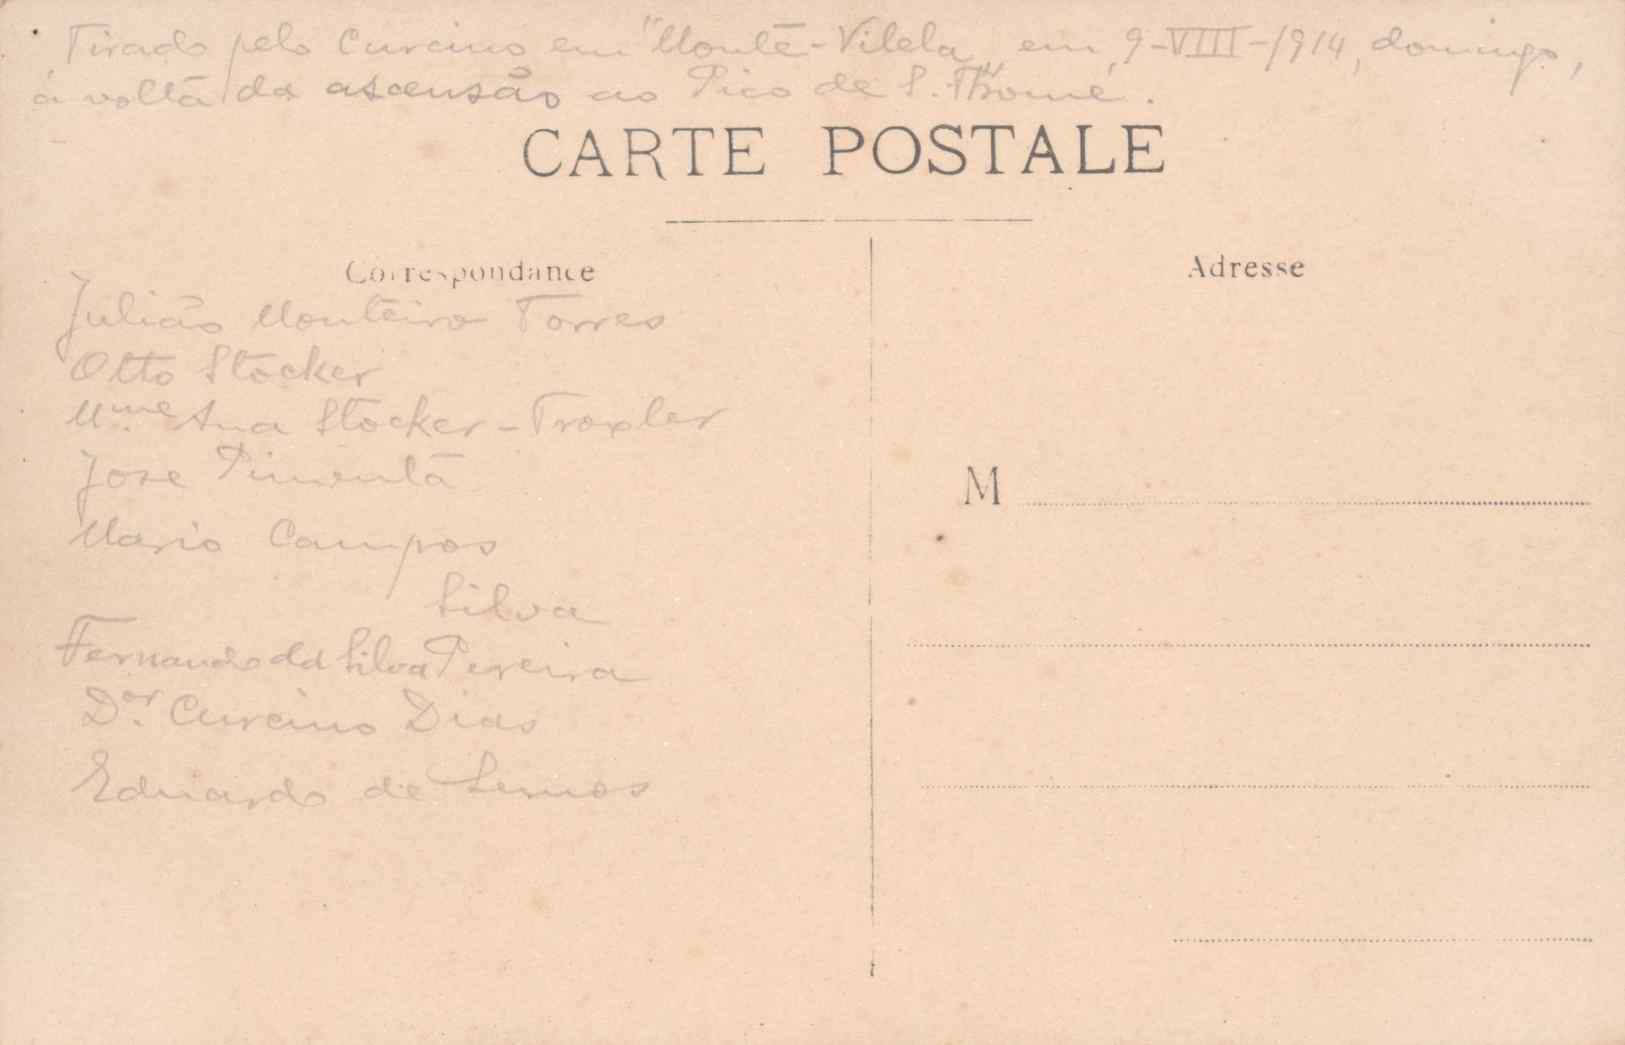 Tirado pelo Curcino em "Monte-Vilela", em 9-VIII-1914, domingo,
á volta da ascensão ao Pico de S. Thomé.
CARTE POSTALE
Correspondance
Adresse
Julião Monteiro Torres
Otto Stocker
Mme Ana Stocker-Troxler
José Pimenta
M
Mario Campos
Silva
Fernando da Silva Pereira
Dor. Curcino Dias
Eduardo de Lemos